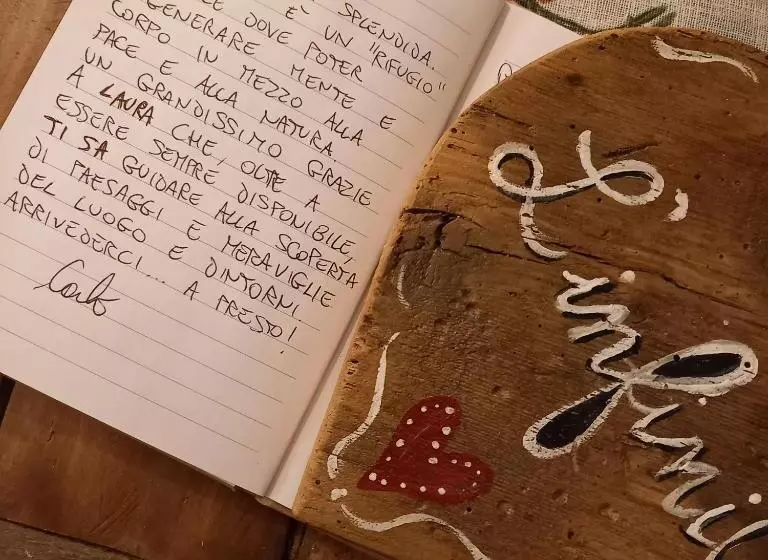 SPLENDIDA.
E DOVE È UN "RIFUGIO"
POTER
GENERARE MENTE E
CORPO IN MEZZO ALLA
PACE E ALLA NATURA.
UN GRANDISSIMO GRAZIE
A LAURA CHE, OLTE A
ESSERE SEMPRE DISPONIBILE,
TI SA GUIDARE ALLA SCOPERTA
DI PAESAGGI E MERAVIGLIE
DEL LUOGO E DINTORNI.
ARRIVEDERCI... A PRESTO!
Carlo
L'
infini